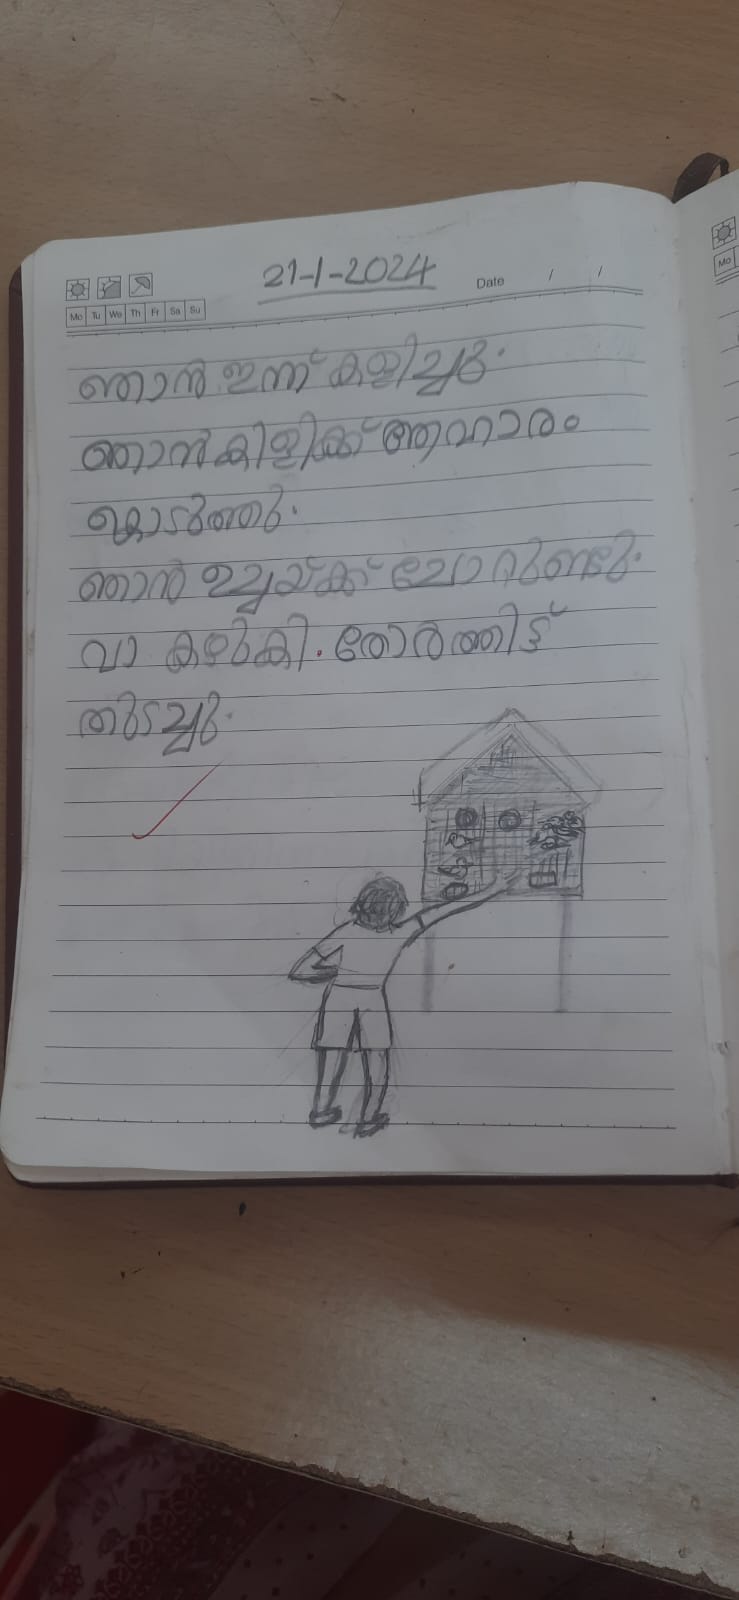 21-1-2024
Date / /
Mo Tu We Th Fr Sa Su
Mo
ഞാൻ ഇന്ന് കളിച്ചു.
ഞാൻ കിളിക്ക് ആഹാരം
കൊടുത്തു.
ഞാൻ ഉച്ചയ്ക്ക് ചോറുണ്ടു.
വാ കഴുകി. തോർത്തിട്ട്
തുടച്ചു.